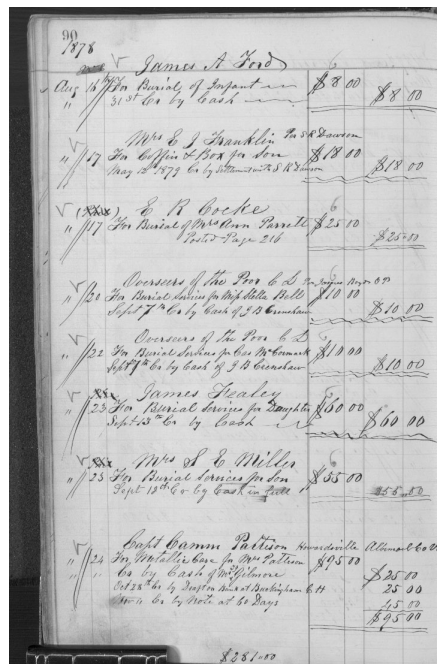 90
1878
James A Ford
Aug 16th For Burial of Infant $8 00
" 31st Cr by Cash $8 00
Mrs E J Franklin Per S R Dawson
" 17 For Coffin & Box for Son $18 00
May 12th 1879 Cr by Settlement with S R Dawson $18 00
E R Cocke
" 17 For Burial of Mrs Ann Parrett $25 00
Posted Page 216 $25.00
Overseers of the Poor C D
" 20 For Burial Services for Miss Stella Bell $10 00
Sept 7th Cr by Cash of J B Crenshaw $10 00
Overseers of the Poor C D
" 22 For Burial Services for Cas McCormack $10 00
Sept 7th Cr by Cash of J B Crenshaw $10 00
James Fealey
" 23 For Burial Services for Daughter $60 00
Sept 13th Cr by Cash $60 00
Mrs S E Miller
" 23 For Burial Services for Son $55 00
Sept 18th Cr by Cash in full $55.00
Capt Camm Patteson Howardsville Albemarl Co Va
" 24 For Metallic Case for Mrs Patteson $95 00
" " Cr by Cash of Mr Gilmore $25 00
Oct 28th Cr by Draft on Bank at Buckingham C H 25 00
" " Cr by Note at 60 Days 45 00
$95 00
$281.00